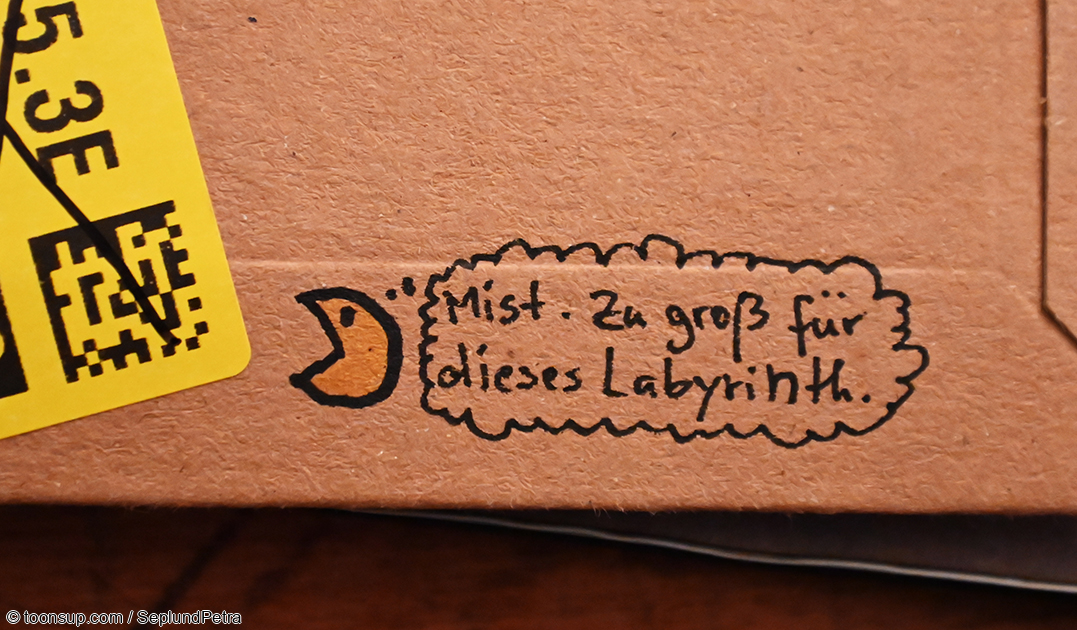 5.3E
Mist. Zu groß für
dieses Labyrinth.
© toonsup.com / SeplundPetra